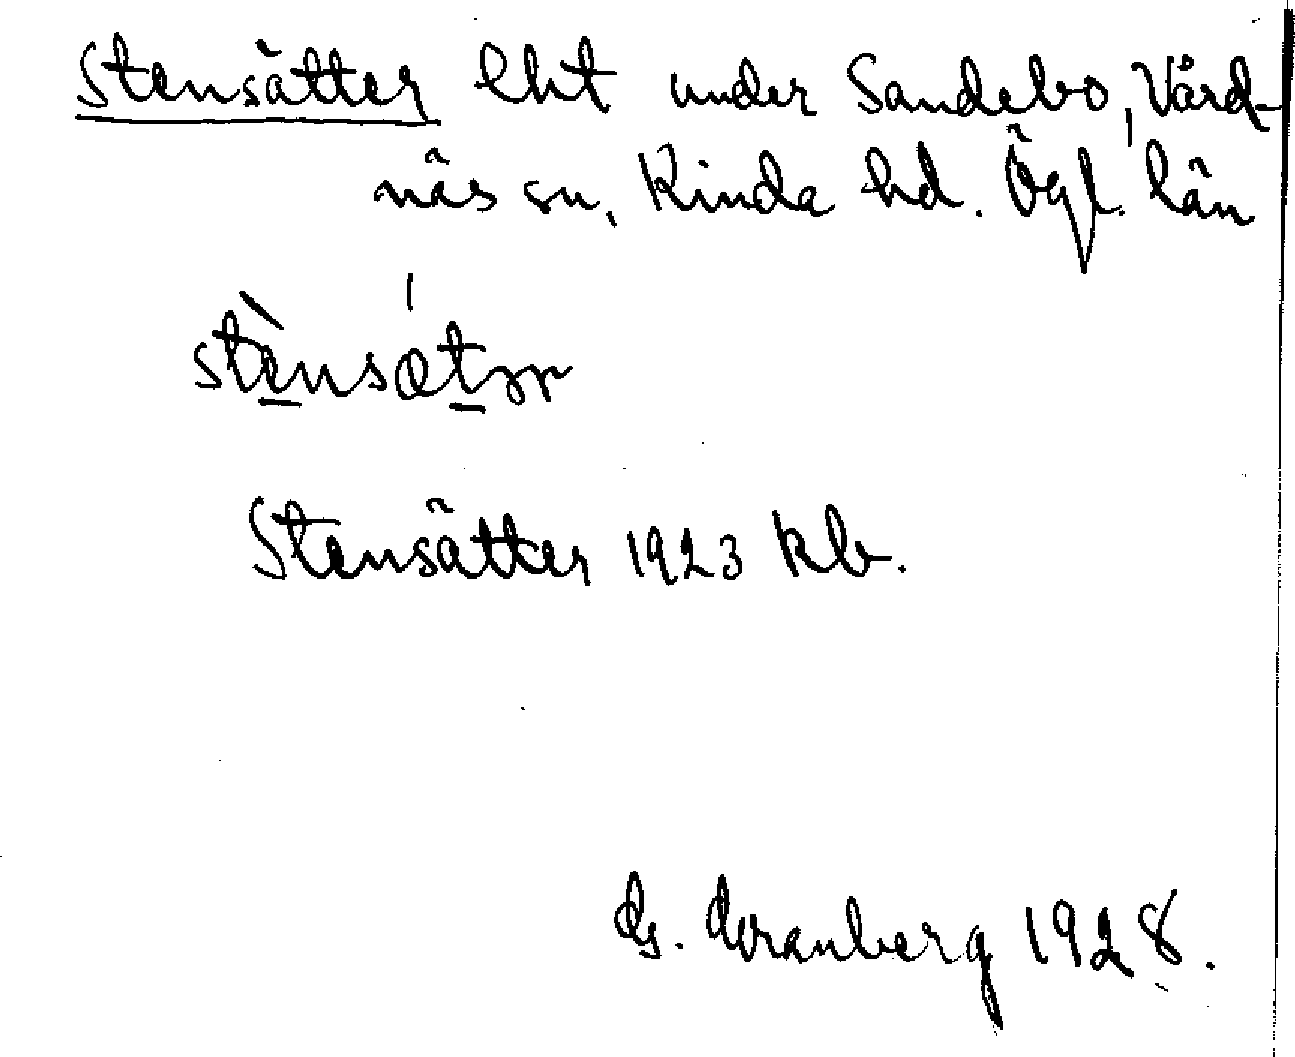 Stensätter lht under Sandebo, Vård-
näs sn, Kinda hd. Ögl. län
Stensätter 1923 kb.
G. Granberg 1928.